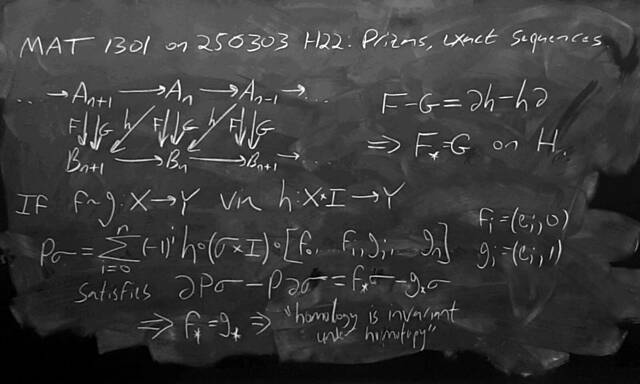 MAT 1301 on 250303 H22: Prizms, exact sequences.
... → A_{n+1} → A_n → A_{n-1} → ...
F G h F G h F G
B_{n+1} → B_n → B_{n+1} → ...
F-G = ∂h-h∂
⇒ F_* = G on H..
If f~g: X→Y via h: X×I→Y
Pσ = \sum_{i=0}^{n} (-1)^i h∘(σ×I)∘[f_0, .. f_i, g_i, .. g_n]
f_i = (e_i, 0)
g_i = (e_i, 1)
satisfies ∂Pσ - P∂σ = f_*σ - g_*σ
⇒ f_* = g_* ⇒ "homology is invariant
homotopy"